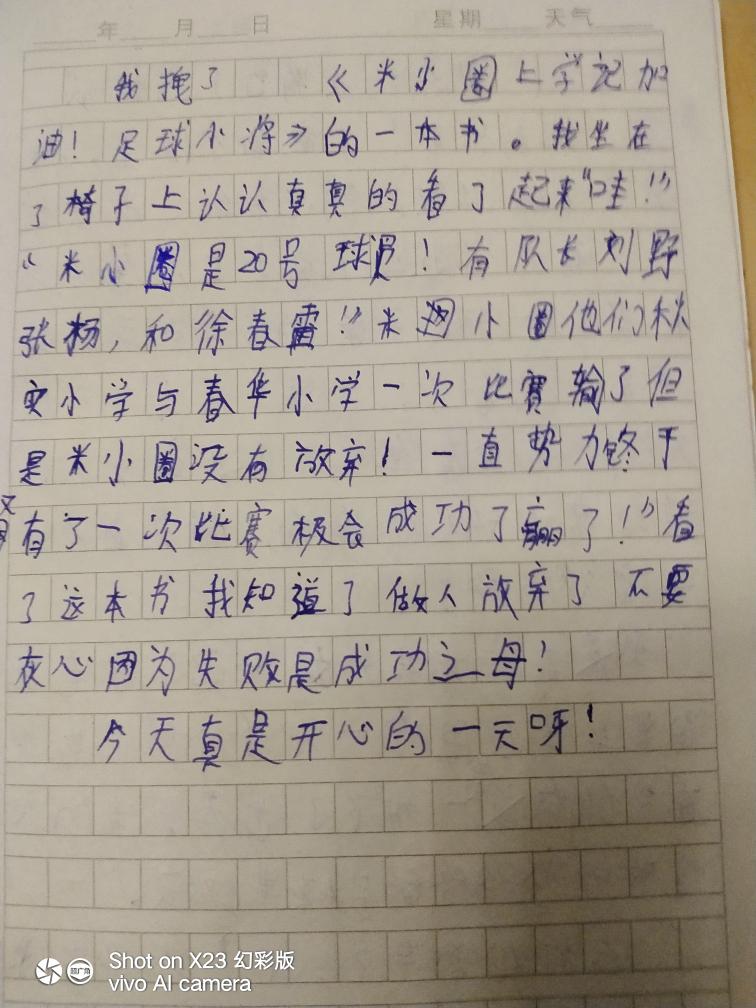 年 月 日 星期 天气
我掩了 《米小圈上学记加
油!足球小将》的一本书。我坐在
了椅子上认认真真的看了起来"哇!"
"米小圈是20号球员!有队长刘野
张杨,和徐春雷!"米小圈他们秋
实小学与春华小学一次比赛输了但
是米小圈没有放弃!一直势力终于
又有了一次比赛极会成功了赢了!"看
了这本书我知道了做人放弃了不要
灰心因为失败是成功之母!
今天真是开心的一天呀!
Shot on X23 幻彩版
vivo AI camera